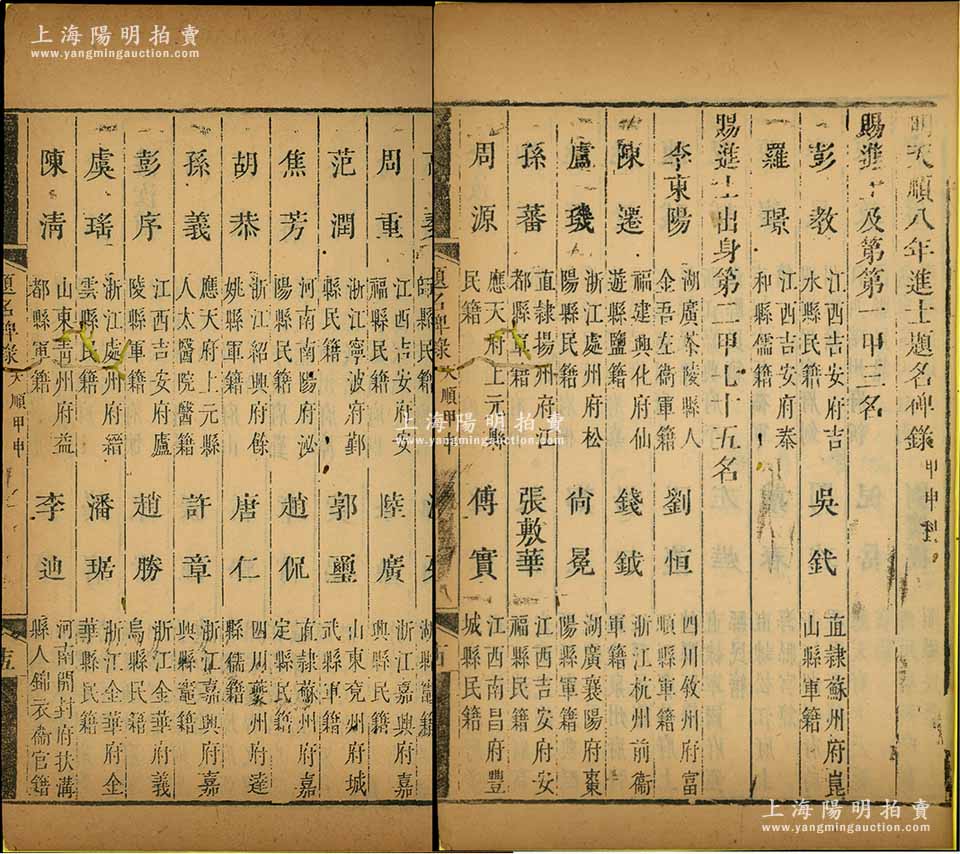 上海陽明拍賣
www.yangmingauction.com
明天順八年進士題名碑錄 甲申科
賜進士及第第一甲三名
彭教 江西吉安府吉水縣民籍
吳鈛 直隸蘇州府崑山縣軍籍
羅璟 江西吉安府泰和縣儒籍
賜進士出身第二甲七十五名
李東陽 湖廣茶陵縣人金吾左衛軍籍
劉恒 四川敘州府富順縣軍籍
陳遷 福建興化府仙遊縣鹽籍
錢鉞 浙江杭州前衛軍籍
盧璣 浙江處州府松陽縣民籍
尙冕 湖廣襄陽府棗陽縣軍籍
孫蕃 直隸揚州府江都縣軍籍
張敷華 江西吉安府安福縣民籍
周源 應天府上元縣民籍
傅實 江西南昌府豐城縣民籍
題名碑錄
師縣民籍
湖 縣竈籍
周重 江西吉安府安福縣民籍
陸廣 浙江嘉興府嘉興縣民籍
范潤 浙江寧波府鄞縣民籍
郭璽 山東兗州府城武縣軍籍
焦芳 河南南陽府泌陽縣民籍
趙侃 直隸蘇州府嘉定縣民籍
胡恭 浙江紹興府餘姚縣軍籍
唐仁 四川夔州府達縣儒籍
孫義 應天府上元縣人太醫院醫籍
許章 浙江嘉興府嘉興縣竈籍
彭序 江西吉安府廬陵縣軍籍
趙勝 浙江金華府義烏縣民籍
虞瑤 浙江處州府縉雲縣民籍
潘琚 浙江金華府金華縣民籍
陳清 山東青州府益都縣軍籍
李迪 河南開封府扶溝縣人錦衣衛官籍
題名碑錄 天順甲申
上海陽明拍賣
www.yangmingauction.com
上海陽明拍賣
www.yangmingauction.com